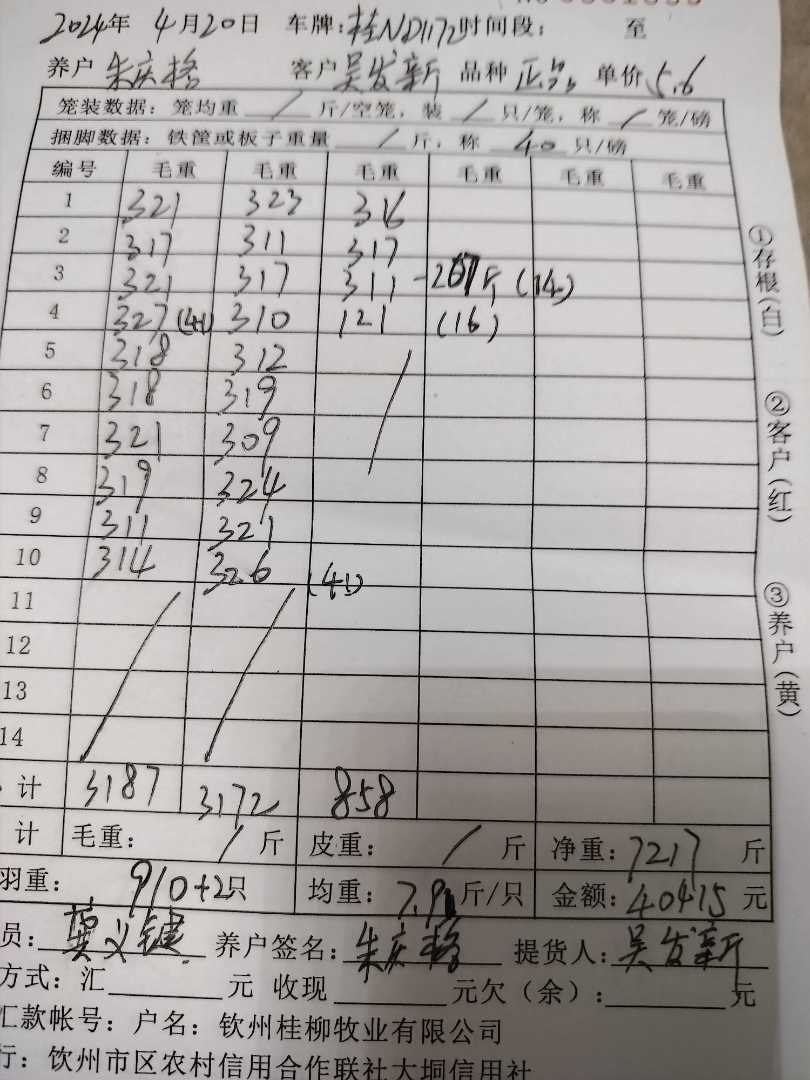 2024年 4月20日 车牌:桂ND1172时间段: 至
养户 朱庆格 客户 吴发新 品种 正品 单价 5.6
笼装数据:笼均重 / 斤/空笼,装 / 只/笼,称 / 笼/磅
捆脚数据:铁筐或板子重量 / 斤,称 40 只/磅
编号 毛重 毛重 毛重 毛重 毛重 毛重
1 321 323 316
2 317 311 317
3 321 317 311 (14)
4 327 (41) 310 121 (16)
5 318 312
6 318 319
7 321 309
8 319 324
9 311 321
10 314 326 (41)
11
12
13
14
计 3187 3172 858
计 毛重: / 斤 皮重: / 斤 净重:7217 斤
羽重: 910+2只 均重: 斤/只 金额:40415 元
员: 义键 养户签名:朱庆格 提货人:吴发新
方式:汇 元 收现 元欠(余): 元
汇款帐号:户名:钦州桂柳牧业有限公司
行:钦州市区农村信用合作联社大垌信用社
①存根(白)
②客户(红)
③养户(黄)